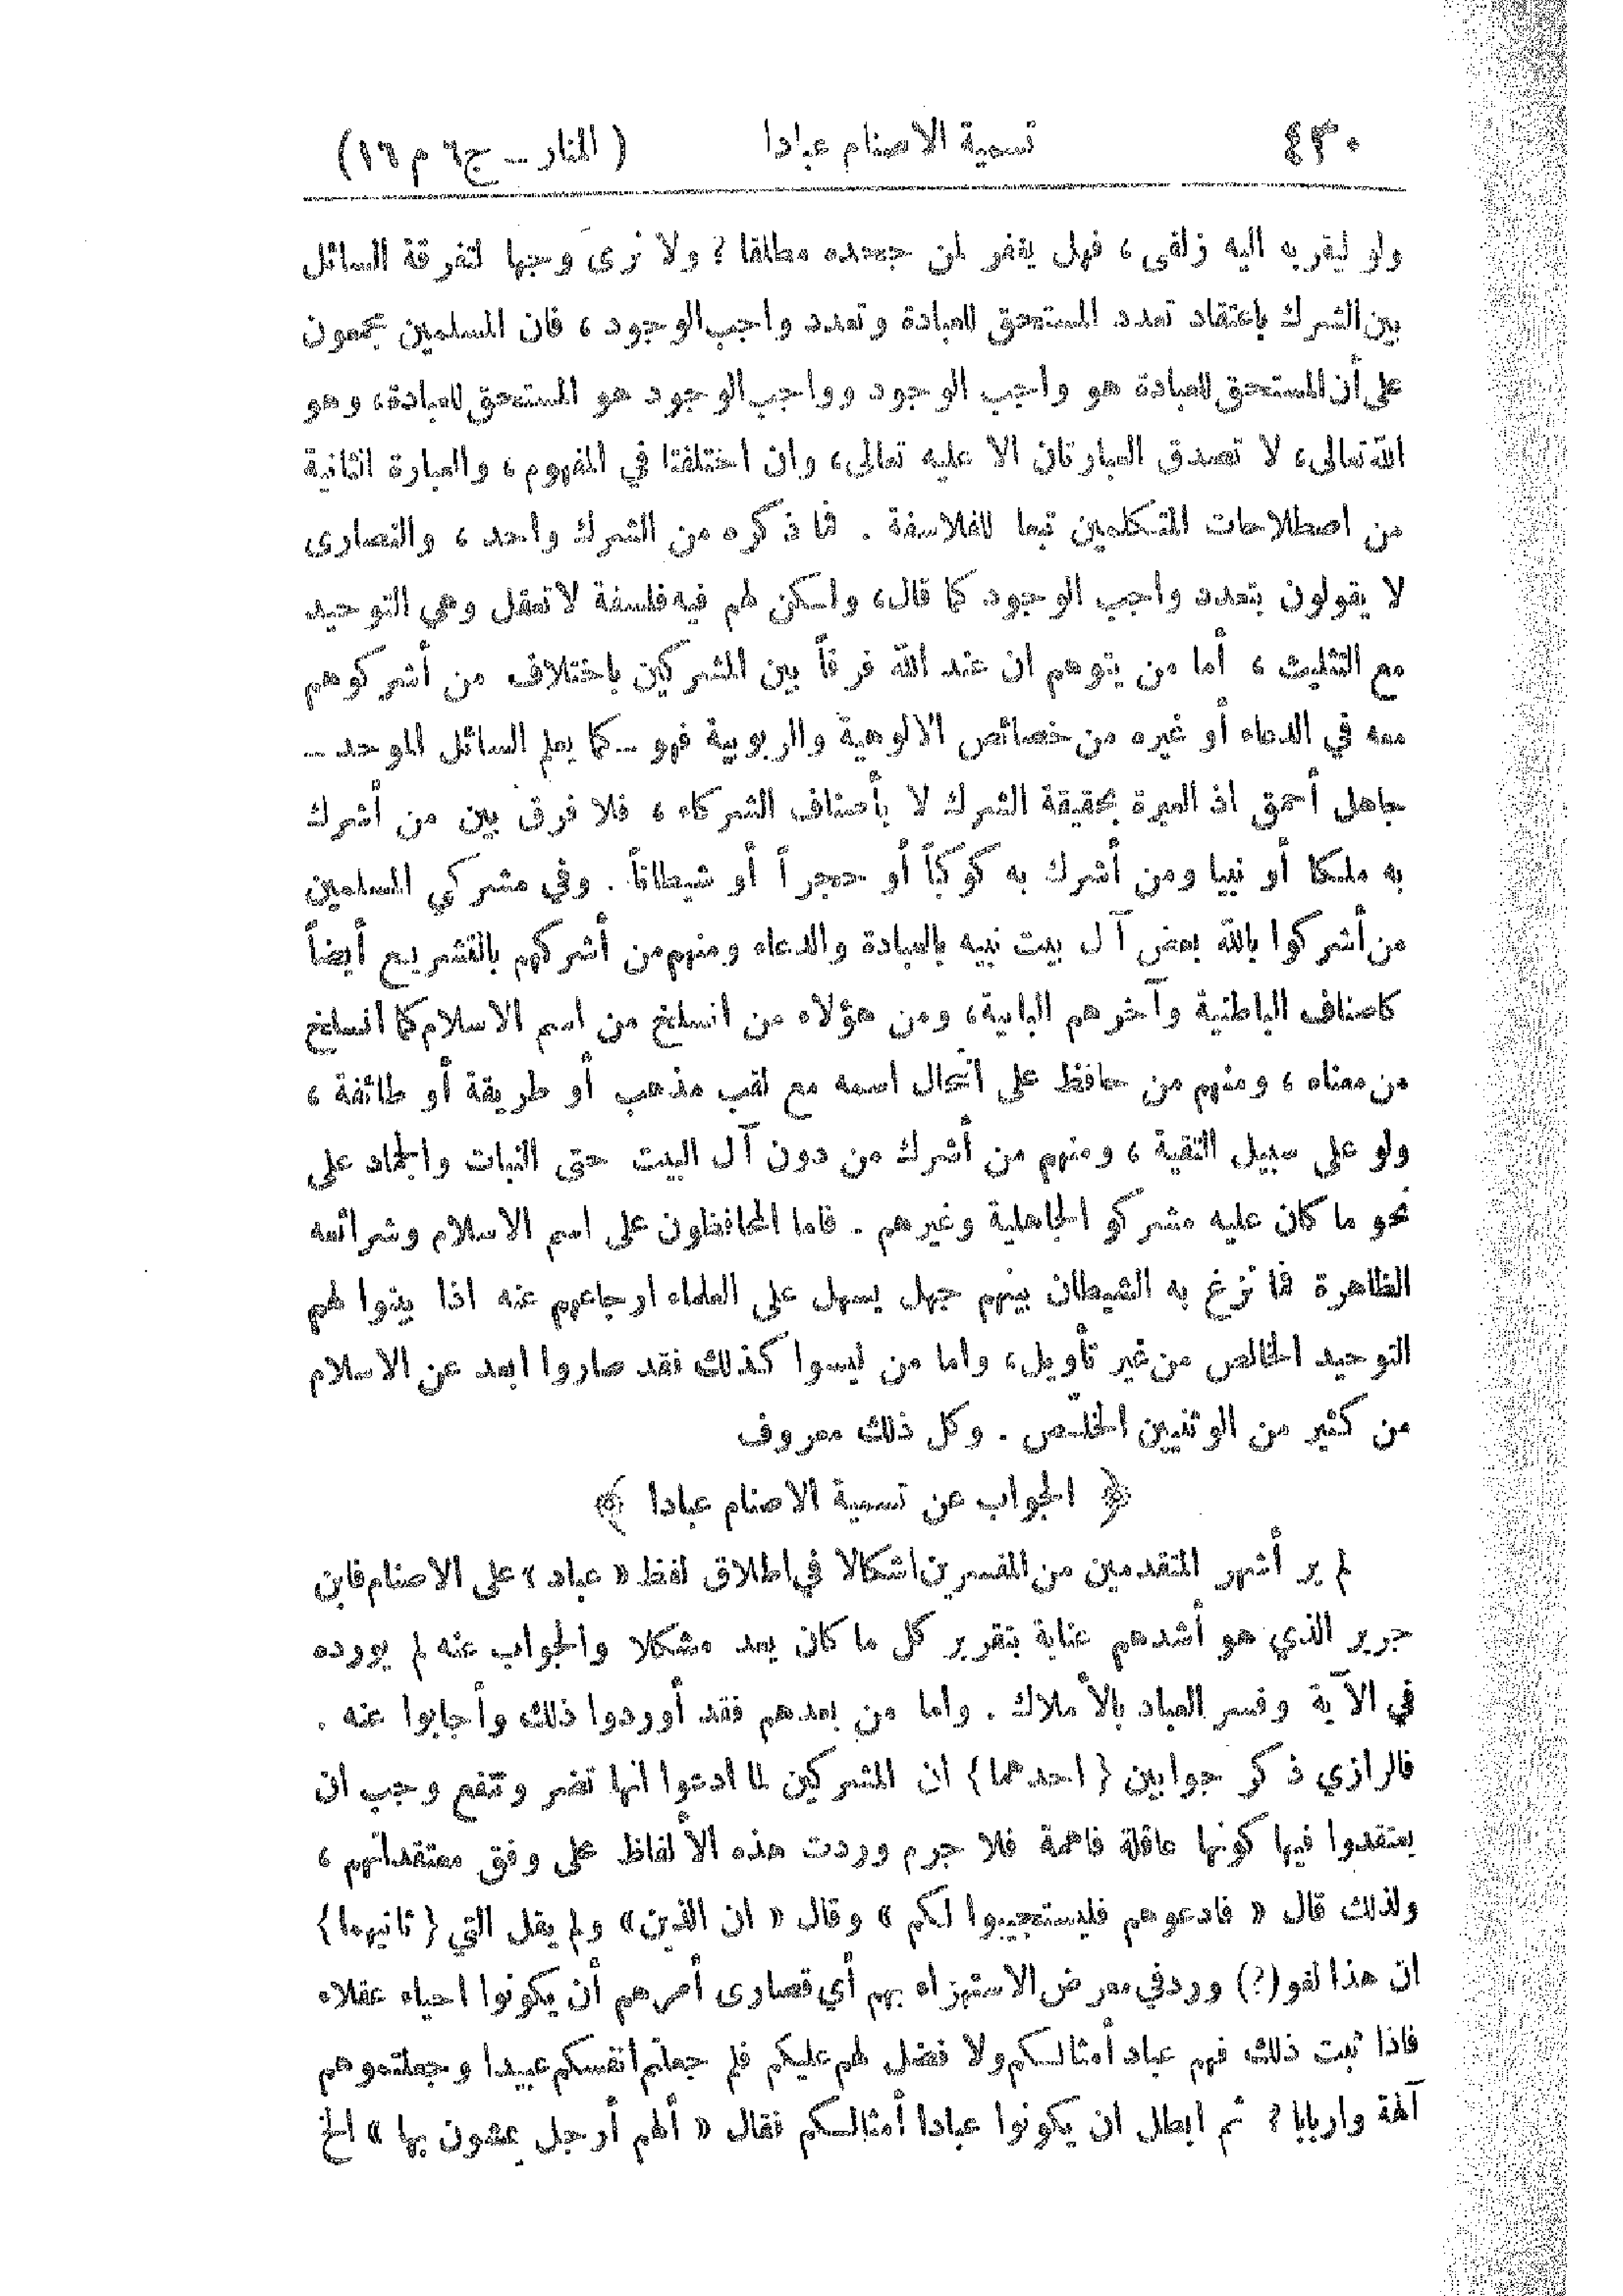 ٤٣٠ تسمية الاصنام عبادا ( المنار ــ ج٦ م ١٦)
ولو ليقربه اليه زلفى ، فهل يغفر لمن جحده مطلقا ؟ ولا نرى وجها لتفرقة السائل
بين الشرك باعتقاد تعدد المستحق للعبادة وتعدد واجب الوجود ، فان المسلمين مجمعون
على أن المستحق للعبادة هو واجب الوجود وواجب الوجود هو المستحق للعبادة، وهو
الله تعالى، لا تصدق العبارتان الا عليه تعالى، وان اختلفتا في المفهوم ، والعبارة الثانية
من اصطلاحات المتكلمين تبعا للفلاسفة . فما ذكره من الشرك واحد ، والنصارى
لا يقولون بتعدد واجب الوجود كما قال، ولسكن لهم فيه فلسفة لا تعقل وهي التوحيد
مع التثليث ، أما من يتوهم ان عند الله فرقاً بين المشركين باختلاف من أشركوهم
معه في الدعاء أو غيره من خصائص الالوهية والربوبية فهو ــ كما يعلم السائل الموحد ــ
جاهل أحمق اذ العبرة بحقيقة الشرك لا بأصناف الشركاء ، فلا فرق بين من أشرك
به ملكا أو نبيا ومن أشرك به كوكباً أو حجراً أو شيطاناً . وفي مشركي المسلمين
من أشركوا بالله بعض آل بيت نبيه بالعبادة والدعاء ومنهم من أشركهم بالتشريع أيضاً
كاصناف الباطنية وآخرهم البابية، ومن هؤلاء من انسلخ من اسم الاسلام كما انسلخ
من معناه ، ومنهم من حافظ على انتحال اسمه مع لقب مذهب أو طريقة أو طائفة ،
ولو على سبيل التقية ، ومنهم من أشرك من دون آل البيت حتى النبات والجماد على
نحو ما كان عليه مشركو الجاهلية وغيرهم . فاما المحافظون على اسم الاسلام وشرائعه
الظاهرة فما نزغ به الشيطان بينهم جهل يسهل على العلماء ارجاعهم عنه اذا بينوا لهم
التوحيد الخالص من غير تأويل، واما من ليسوا كذلك فقد صاروا ابعد عن الاسلام
من كثير من الوثنيين الخلّص . وكل ذلك معروف
﴿ الجواب عن تسمية الاصنام عبادا ﴾
لم ير أشهر المتقدمين من المفسرين اشكالا في اطلاق لفظ « عباد » على الاصنام فابن
جرير الذي هو أشدهم عناية بتقرير كل ما كان يعد مشكلا والجواب عنه لم يورده
في الآية وفسر العباد بالأملاك . واما من بعدهم فقد أوردوا ذلك وأجابوا عنه .
فالرازي ذكر جوابين { احدهما } ان المشركين لما ادعوا انها تضر وتنفع وجب ان
يعتقدوا فيها كونها عاقلة فاهمة فلا جرم وردت هذه الألفاظ على وفق معتقداتهم ،
ولذلك قال « فادعوهم فليستجيبوا لكم » وقال « ان الذين» ولم يقل التي { ثانيهما }
ان هذا لغو (؟) ورد في معرض الاستهزاء بهم أي قصارى أمرهم أن يكونوا احياء عقلاء
فاذا ثبت ذلك فهم عباد أمثالكم ولا فضل لهم عليكم فلم جعلتم انفسكم عبيدا وجعلتموهم
آلهة واربابا ؟ ثم ابطل ان يكونوا عبادا أمثالكم فقال « ألهم أرجل يمشون بها » الخ